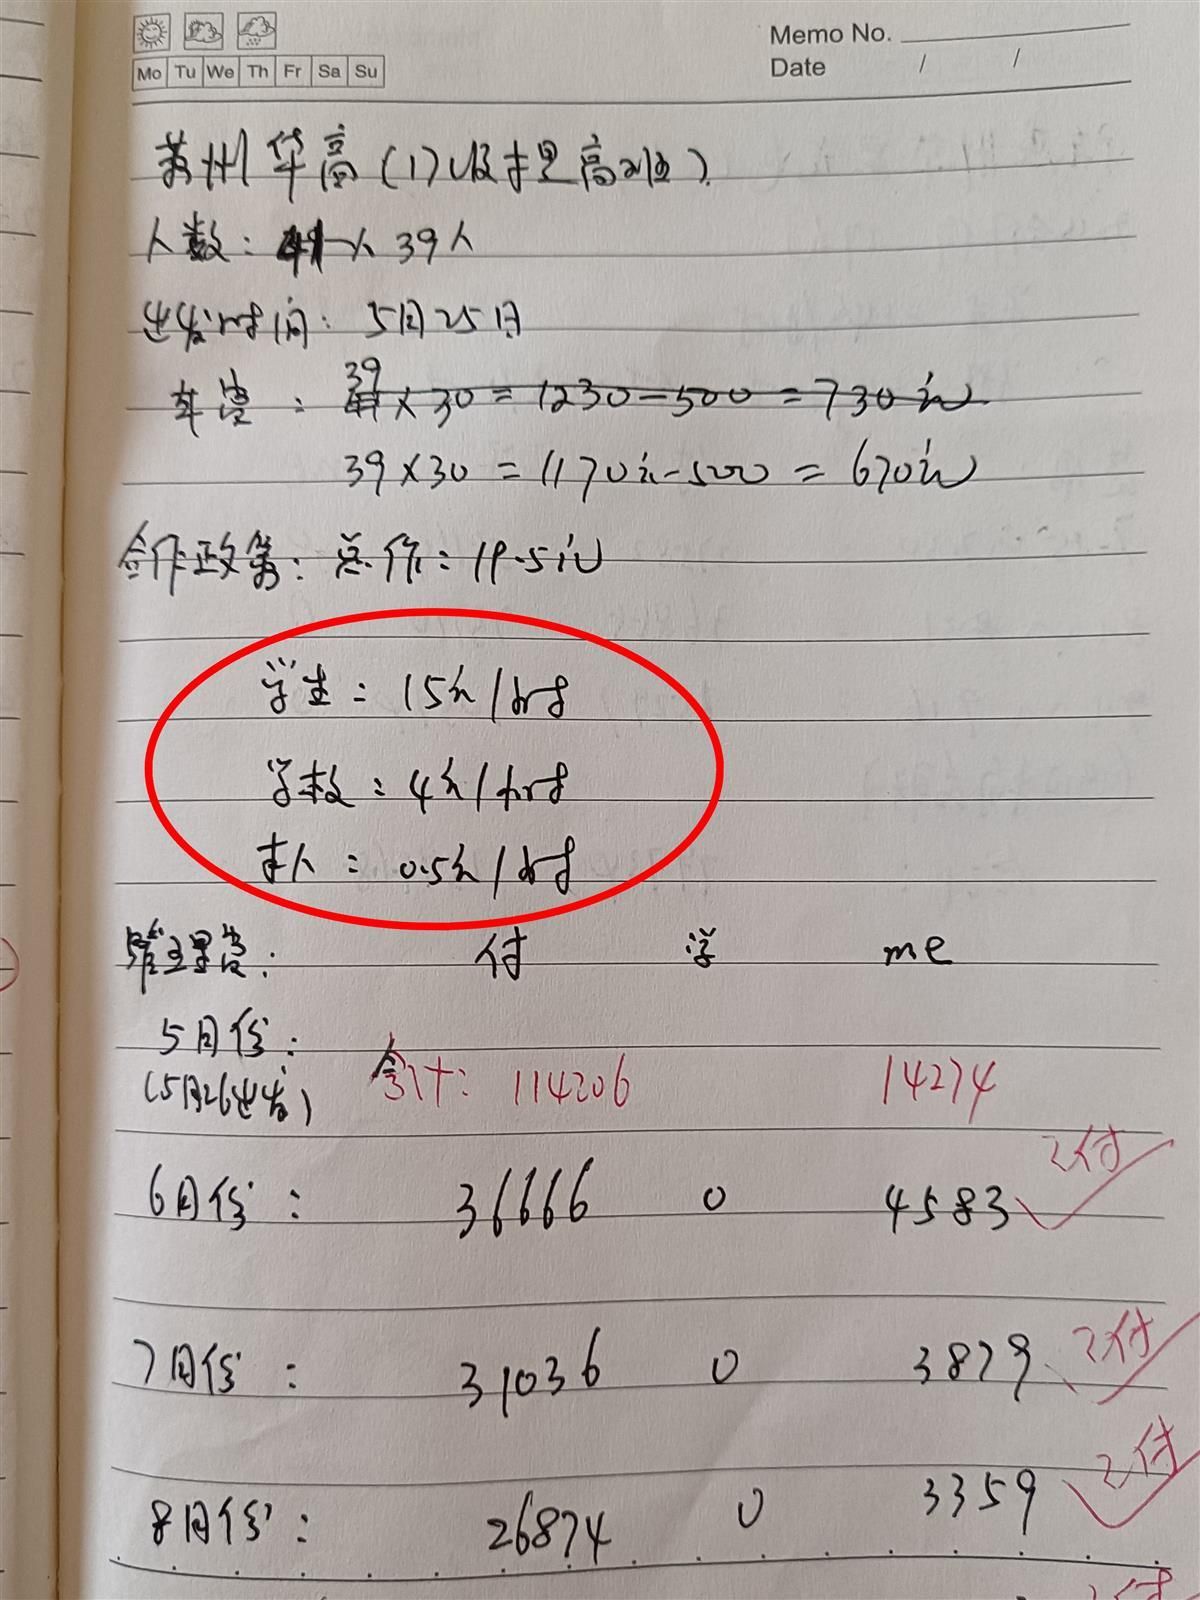 Memo No.
Mo Tu We Th Fr Sa Su
Date / /
苏州华高(
人数: 39人
出发时间: 5月25日
车费: 39×30=1230-500=730元
39×30=1170元-500=670元
合作政策: 总价: 19.5元
学生: 15元/时
学校: 4元/时
本人: 0.5元/时
管理费: 付 学 me
5月份:
(5月26出发) 合计: 114206 14274
6月份: 36666 0 4583 已付
7月份: 31036 0 3879 已付
8月份: 26874 0 3359 已付